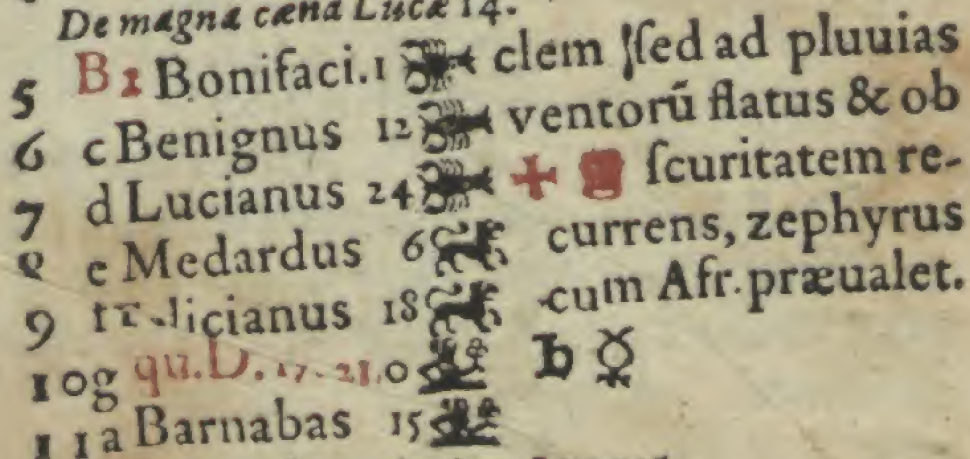 De magna cœna Lucæ 14.
5 B 1 Bonifaci. 1 clem ſſed ad pluuias
6 c Benignus 12 ventorū flatus & ob
7 d Lucianus 24 ſcuritatem re-
8 e Medardus 6 currens, zephyrus
9 18 cum Afr. præualet.
10 g qu. D. 17. 21. 0 ♄ ☿
11 a Barnabas 15